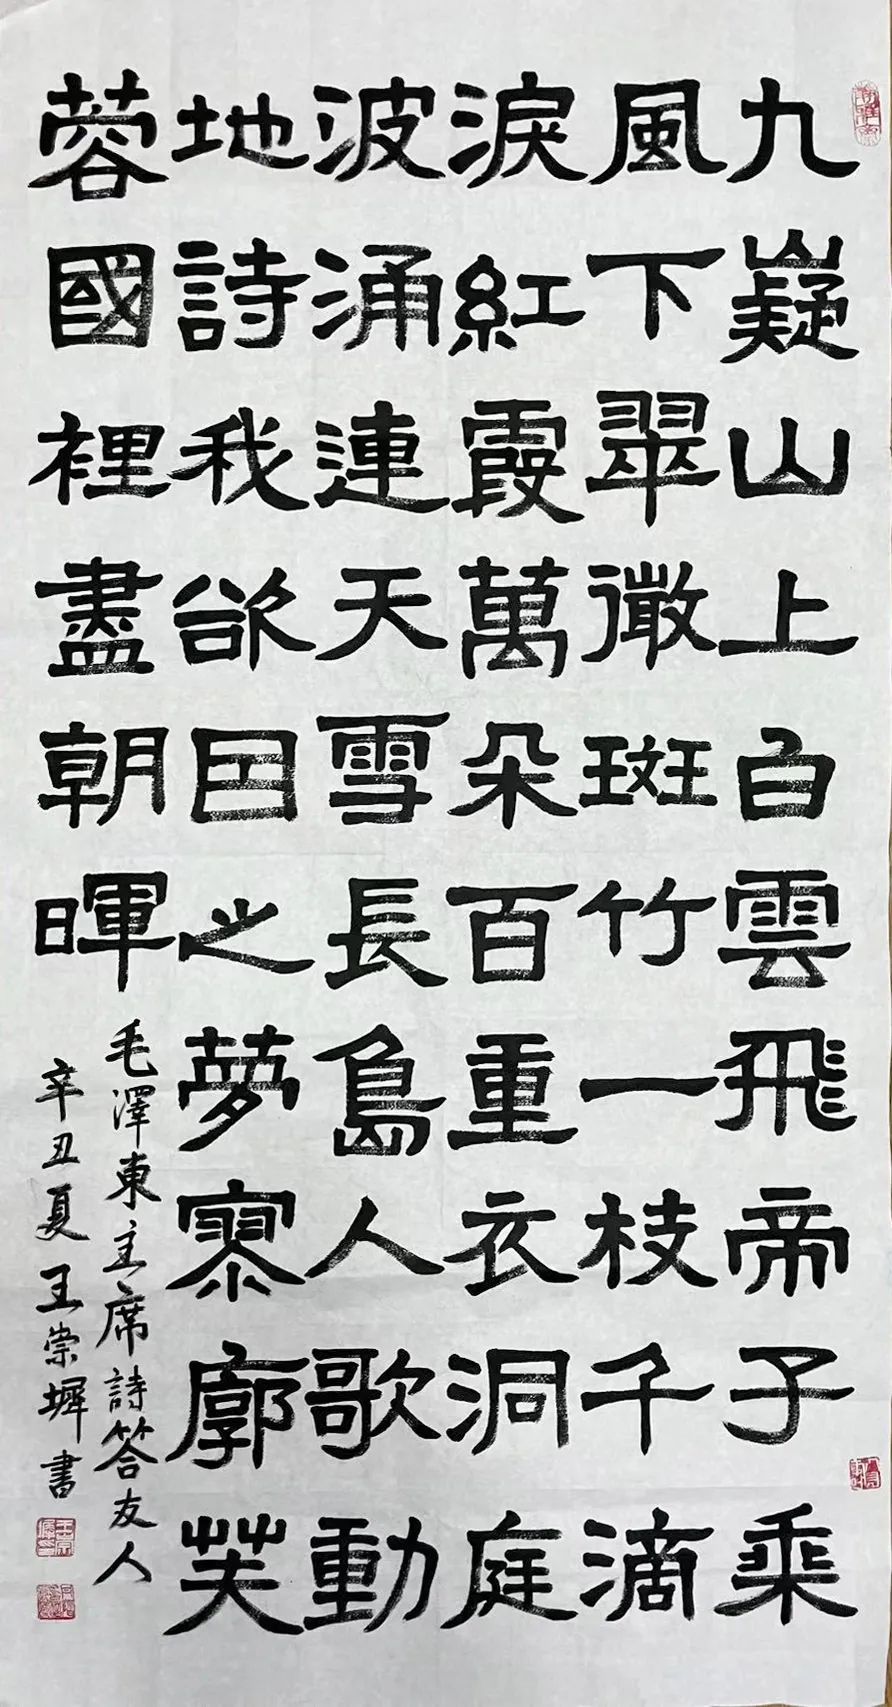 九嶷山上白雲飛帝子乘
風下翠微斑竹一枝千滴
淚紅霞萬朵百重衣洞庭
波涌連天雪長島人歌動
地詩我欲因之夢寥廓芙
蓉國裡盡朝暉
毛澤東主席詩答友人
辛丑夏王崇墀書